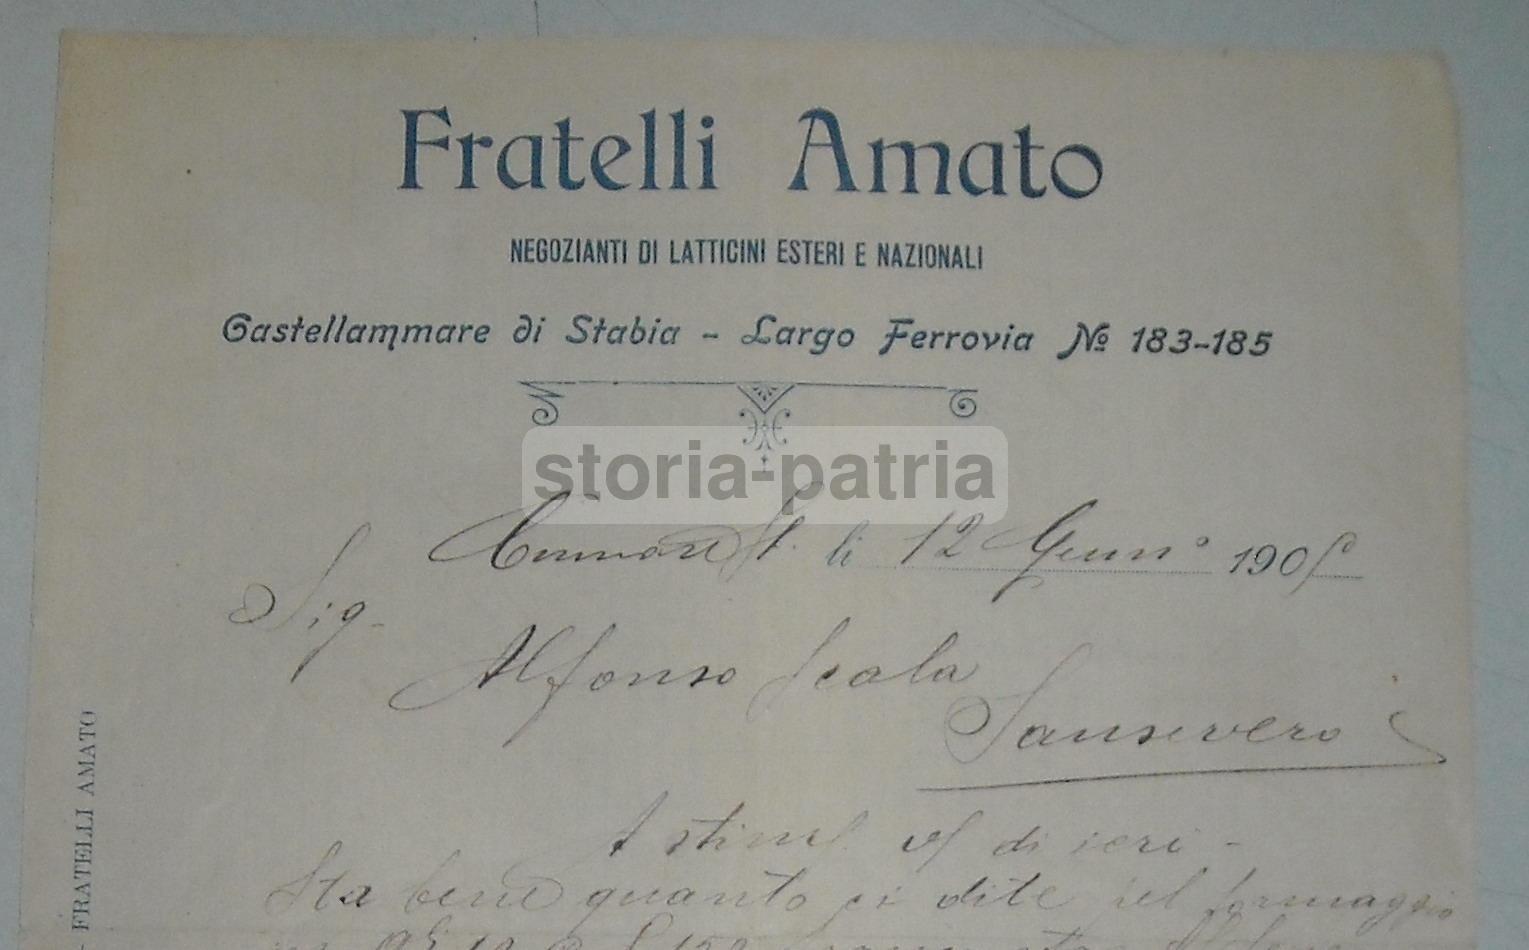 Fratelli Amato
NEGOZIANTI DI LATTICINI ESTERI E NAZIONALI
Castellammare di Stabia - Largo Ferrovia № 183-185
storia-patria
li 12 Genn° 190
Sig.
Alfonso Scala
Sansevero
A stim. di ieri -
Sta bene quanto ci dite pel formaggio
FRATELLI AMATO